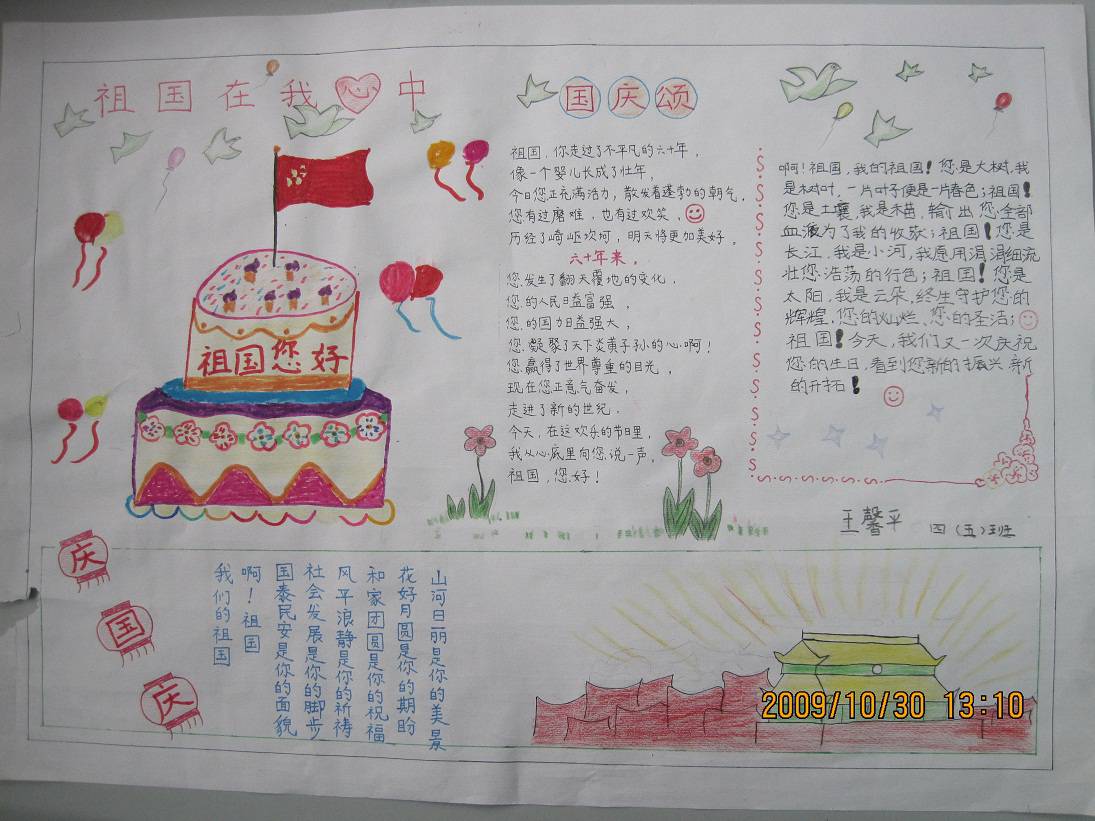 祖国在我中
国庆颂
祖国，你走过了不平凡的六十年，
像一个婴儿长成了壮年，
今日您正充满活力，散发着蓬勃的朝气。
您有过磨难，也有过欢笑，
历经了崎岖坎坷，明天将更加美好。
六十年来，
您发生了翻天覆地的变化，
您的人民日益富强，
您的国力日益强大，
您凝聚了天下炎黄子孙的心啊！
您赢得了世界尊重的目光，
现在您正意气奋发，
走进了新的世纪．
今天，在这欢乐的节日里，
我从心底里向您说一声，
祖国，您好！
啊！祖国，我的祖国！您是大树，我
是树叶，一片叶子便是一片春色；祖国！
您是土壤，我是苗，输出您全部
血液为了我的收获；祖国！您是
长江，我是小河，我愿用涓涓细流
壮您浩荡的行色；祖国！您是
太阳，我是云朵，终生守护您的
辉煌，您的灿烂、您的圣洁；
祖国！今天，我们又一次庆祝
您的生日，看到您新的振兴，新
的开拓！
王馨平 四（五）班
祖国您好
庆
国
庆
山河日丽是你的美景
花好月圆是你的期盼
和家团圆是你的祝福
风平浪静是你的祈祷
社会发展是你的脚步
国泰民安是你的面貌
啊！祖国
我们的祖国
2009/10/30 13:10